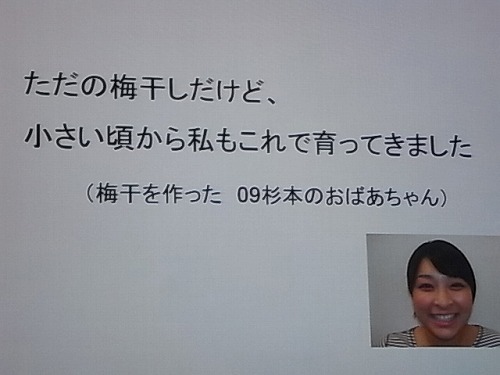 ただの梅干しだけど、
小さい頃から私もこれで育ってきました
（梅干を作った　09杉本のおばあちゃん）